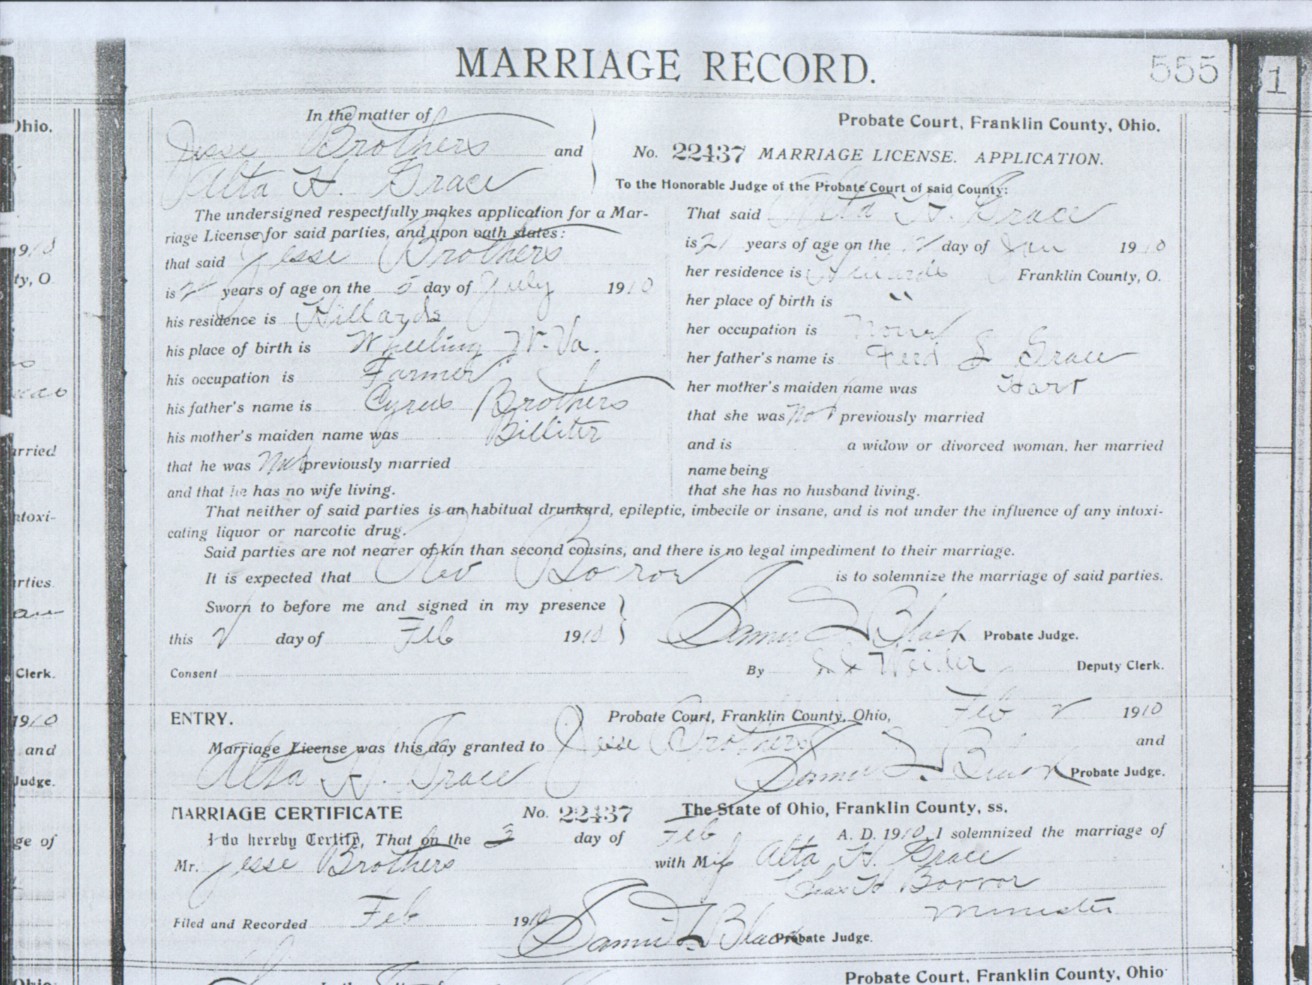 MARRIAGE RECORD.
555
1
In the matter of
Jesse Brothers and
Alta H. Grace
Probate Court, Franklin County, Ohio.
No. 22437 MARRIAGE LICENSE. APPLICATION.
To the Honorable Judge of the Probate Court of said County:
The undersigned respectfully makes application for a Mar-
riage License for said parties, and upon oath states:
that said Jesse Brothers
is years of age on the 5 day of July 1910
his residence is Hillards
his place of birth is Wheeling W. Va.
his occupation is Farmer
his father's name is Cyrus Brothers
his mother's maiden name was Billiter
that he was Not previously married
and that he has no wife living.
That said Alta H. Grace
is 21 years of age on the 2 day of Jan 1910
her residence is Hillards Franklin County, O.
her place of birth is "
her occupation is None
her father's name is Fred S Grace
her mother's maiden name was Hart
that she was Not previously married
and is a widow or divorced woman, her married
name being
that she has no husband living.
That neither of said parties is an habitual drunkard, epileptic, imbecile or insane, and is not under the influence of any intoxi-
cating liquor or narcotic drug.
Said parties are not nearer of kin than second cousins, and there is no legal impediment to their marriage.
It is expected that Rev Borror is to solemnize the marriage of said parties.
Sworn to before me and signed in my presence
this 2 day of Feb 1910
Samuel L Black Probate Judge.
Consent
By Weider Deputy Clerk.
ENTRY.
Probate Court, Franklin County, Ohio, Feb 2 1910
Marriage License was this day granted to Jesse Brothers and
Alta H. Grace
Samuel L Black Probate Judge.
MARRIAGE CERTIFICATE No. 22437 The State of Ohio, Franklin County, ss.
I do hereby Certify, That on the 3 day of Feb A. D. 1910, I solemnized the marriage of
Mr. Jesse Brothers with Miss Alta H. Grace
Chas H Borror
Minister
Filed and Recorded Feb 1910
Samuel L Black Probate Judge.
Probate Court, Franklin County, Ohio
Ohio.
1910
ty, O
arried
ntoxi-
rties.
Clerk.
1910
and
Judge.
ge of
Ohio.